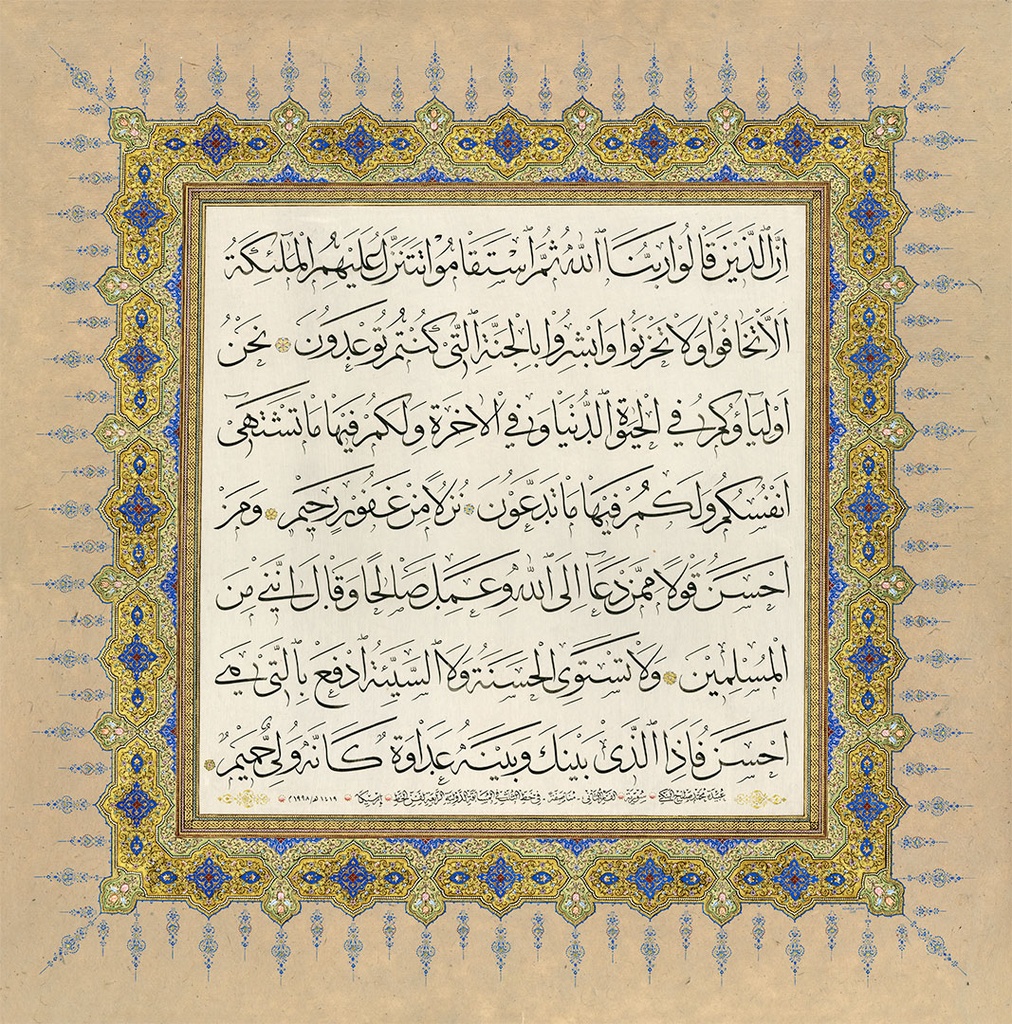 اِنَّ الَّذِينَ قَالُوا رَبُّنَا اللهُ ثُمَّ اسْتَقَامُوا تَتَنَزَّلُ عَلَيْهِمُ الْمَلٰٓئِكَةُ
اَلَّا تَخَافُوا وَلَا تَحْزَنُوا وَاَبْشِرُوا بِالْجَنَّةِ الَّتِى كُنْتُمْ تُوعَدُونَ نَحْنُ
اَوْلِيَاؤُكُمْ فِى الْحَيٰوةِ الدُّنْيَا وَفِى الْاٰخِرَةِ وَلَكُمْ فِيهَا مَا تَشْتَهِىٓ
اَنْفُسُكُمْ وَلَكُمْ فِيهَا مَا تَدَّعُونَ نُزُلًا مِنْ غَفُورٍ رَحِيمٍ وَمَنْ
اَحْسَنُ قَوْلًا مِمَّنْ دَعَآ اِلَى اللهِ وَعَمِلَ صَالِحًا وَقَالَ اِنَّنِى مِنَ
الْمُسْلِمِينَ وَلَا تَسْتَوِى الْحَسَنَةُ وَلَا السَّيِّئَةُ اِدْفَعْ بِالَّتِى هِىَ
اَحْسَنُ فَاِذَا الَّذِى بَيْنَكَ وَبَيْنَهُ عَدَاوَةٌ كَاَنَّهُ وَلِىٌّ حَمِيمٌ
سورية ١٤١٩هـ ١٩٩٨م